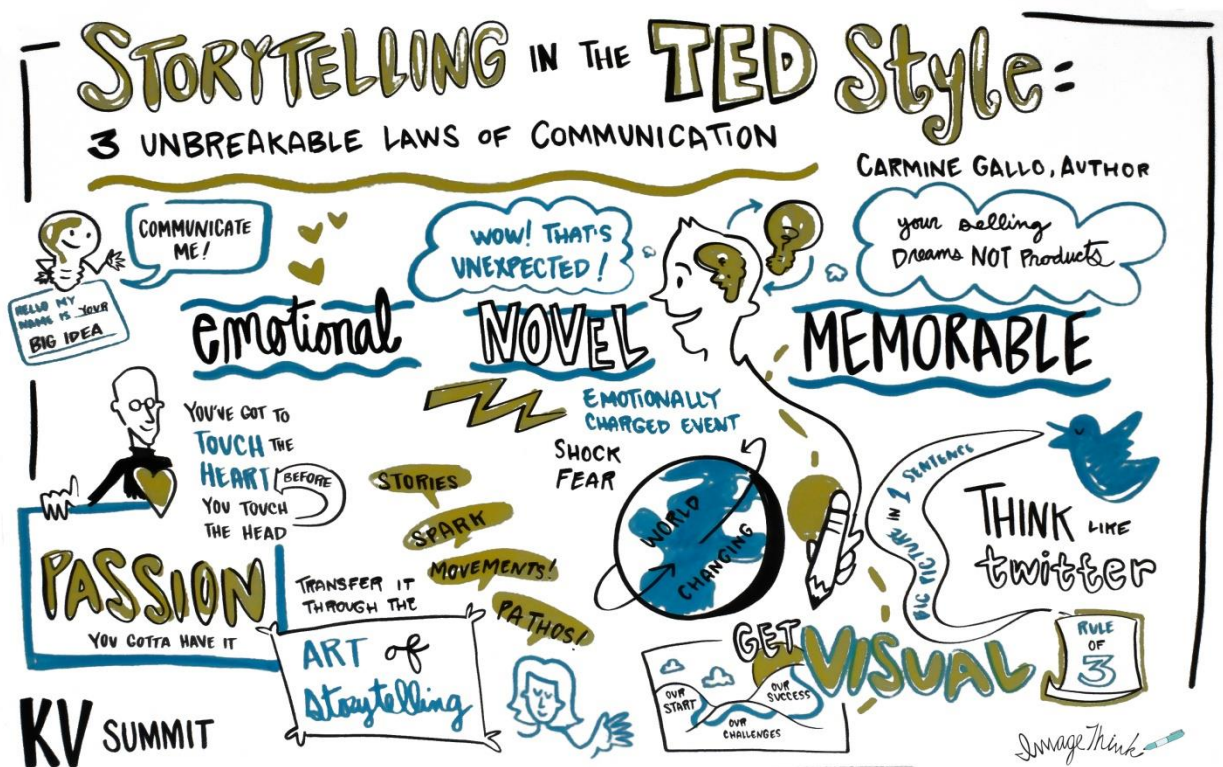 STORYTELLING IN THE TED Style:
3 UNBREAKABLE LAWS OF COMMUNICATION
CARMINE GALLO, AUTHOR
COMMUNICATE
ME!
HELLO MY
NAME IS YOUR
BIG IDEA
emotional
WOW! THAT'S
UNEXPECTED!
NOVEL
your selling
Dreams NOT Products
MEMORABLE
YOU'VE GOT TO
TOUCH THE
HEART
BEFORE
YOU TOUCH
THE HEAD
PASSION
YOU GOTTA HAVE IT
TRANSFER IT
THROUGH THE
ART of
Storytelling
STORIES
SPARK
MOVEMENTS!
PATHOS!
EMOTIONALLY
CHARGED EVENT
SHOCK
FEAR
WORLD
CHANGING
BIG PICTURE IN 1 SENTENCE
THINK LIKE
twitter
RULE
OF
3
GET
VISUAL
OUR
START
OUR
CHALLENGES
OUR
SUCCESS
KV SUMMIT
ImageThink